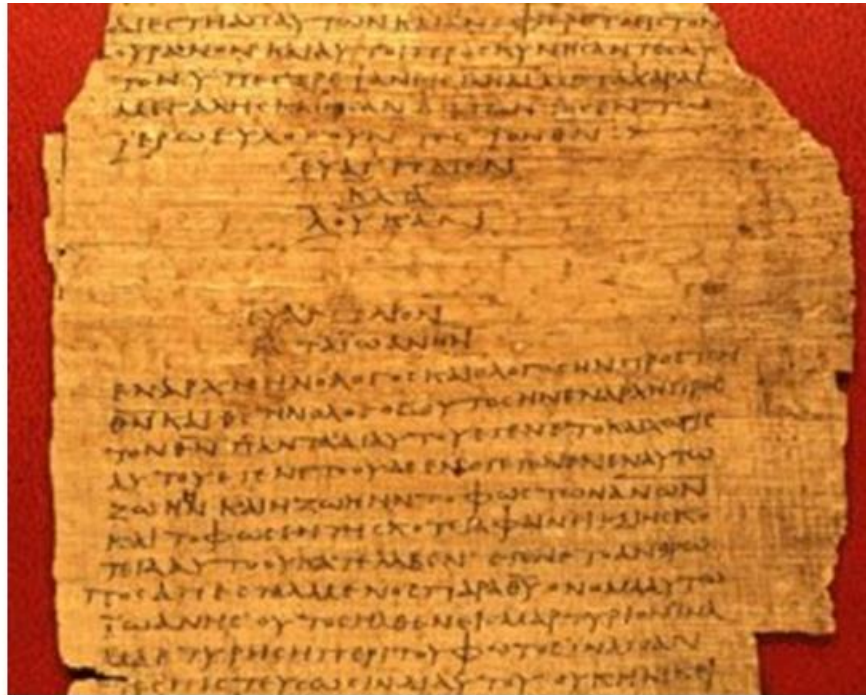 ΔΙΕϹΤΗ ΑΠ ΑΥΤΩΝ ΚΑΙ ΑΝΕΦΕΡΕΤΟ ΕΙϹ ΤΟΝ
ΟΥΡΑΝΟΝ ΚΑΙ ΑΥΤΟΙ ΠΡΟϹΚΥΝΗϹΑΝΤΕϹ ΑΥ
ΤΟΝ ΥΠΕϹΤΡΕΨΑΝ ΕΙϹ ΜΕΤΑ ΧΑΡΑϹ
ΜΕΓΑΛΗϹ ΚΑΙ ΗϹΑΝ ΕΝ ΤΩ
ΙΕΡΩ ΕΥΛΟΓΟΥΝΤΕϹ ΤΟΝ Θ̅Ν̅ :>
ΕΥΑΓΓΕΛΙΟΝ
ΚΑΤΑ
ΛΟΥΚΑΝ
ΕΥΑΓΓΕΛΙΟΝ
ΚΑΤΑ ΙΩΑΝΗΝ
ΕΝ ΑΡΧΗ ΗΝ Ο ΛΟΓΟϹ ΚΑΙ Ο ΛΟΓΟϹ ΗΝ ΠΡΟϹ ΤΟΝ
Θ̅Ν̅ ΚΑΙ Θ̅Ϲ̅ ΗΝ Ο ΛΟΓΟϹ ΟΥΤΟϹ ΗΝ ΕΝ ΑΡΧΗ ΠΡΟϹ
ΤΟΝ Θ̅Ν̅ ΠΑΝΤΑ ΔΙ ΑΥΤΟΥ ΕΓΕΝΕΤΟ ΚΑΙ ΧΩΡΙϹ
ΑΥΤΟΥ ΕΓΕΝΕΤΟ ΟΥΔΕ ΕΝ Ο ΓΕΓΟΝΕΝ ΕΝ ΑΥΤΩ
ΖΩΗ ΗΝ ΚΑΙ Η ΖΩΗ ΗΝ ΤΟ ΦΩϹ ΤΩΝ Α̅Ν̅Ω̅Ν̅
ΚΑΙ ΤΟ ΦΩϹ ΕΝ ΤΗ ϹΚΟΤΕΙΑ ΦΑΙΝΕΙ ΚΑΙ Η ϹΚΟ
ΤΕΙΑ ΑΥΤΟ ΟΥ ΚΑΤΕΛΑΒΕΝ ΕΓΕΝΕΤΟ ΑΝΘΡΩ
ΠΟϹ ΑΠΕϹΤΑΛΜΕΝΟϹ ΠΑΡΑ Θ̅Υ̅ ΟΝΟΜΑ ΑΥΤΩ
ΙΩΑΝΗϹ ΟΥΤΟϹ ΗΛΘΕΝ ΕΙϹ ΜΑΡΤΥΡΙΟΝ ΙΝΑ
ΜΑΡΤΥΡΗϹΗ ΠΕΡΙ ΤΟΥ ΦΩΤΟϹ ΙΝΑ ΠΑΝ
ΤΕϹ ΠΙϹΤΕΥϹΩϹΙΝ ΔΙ ΑΥΤΟΥ ΟΥΚ ΗΝ ΕΚΕΙ